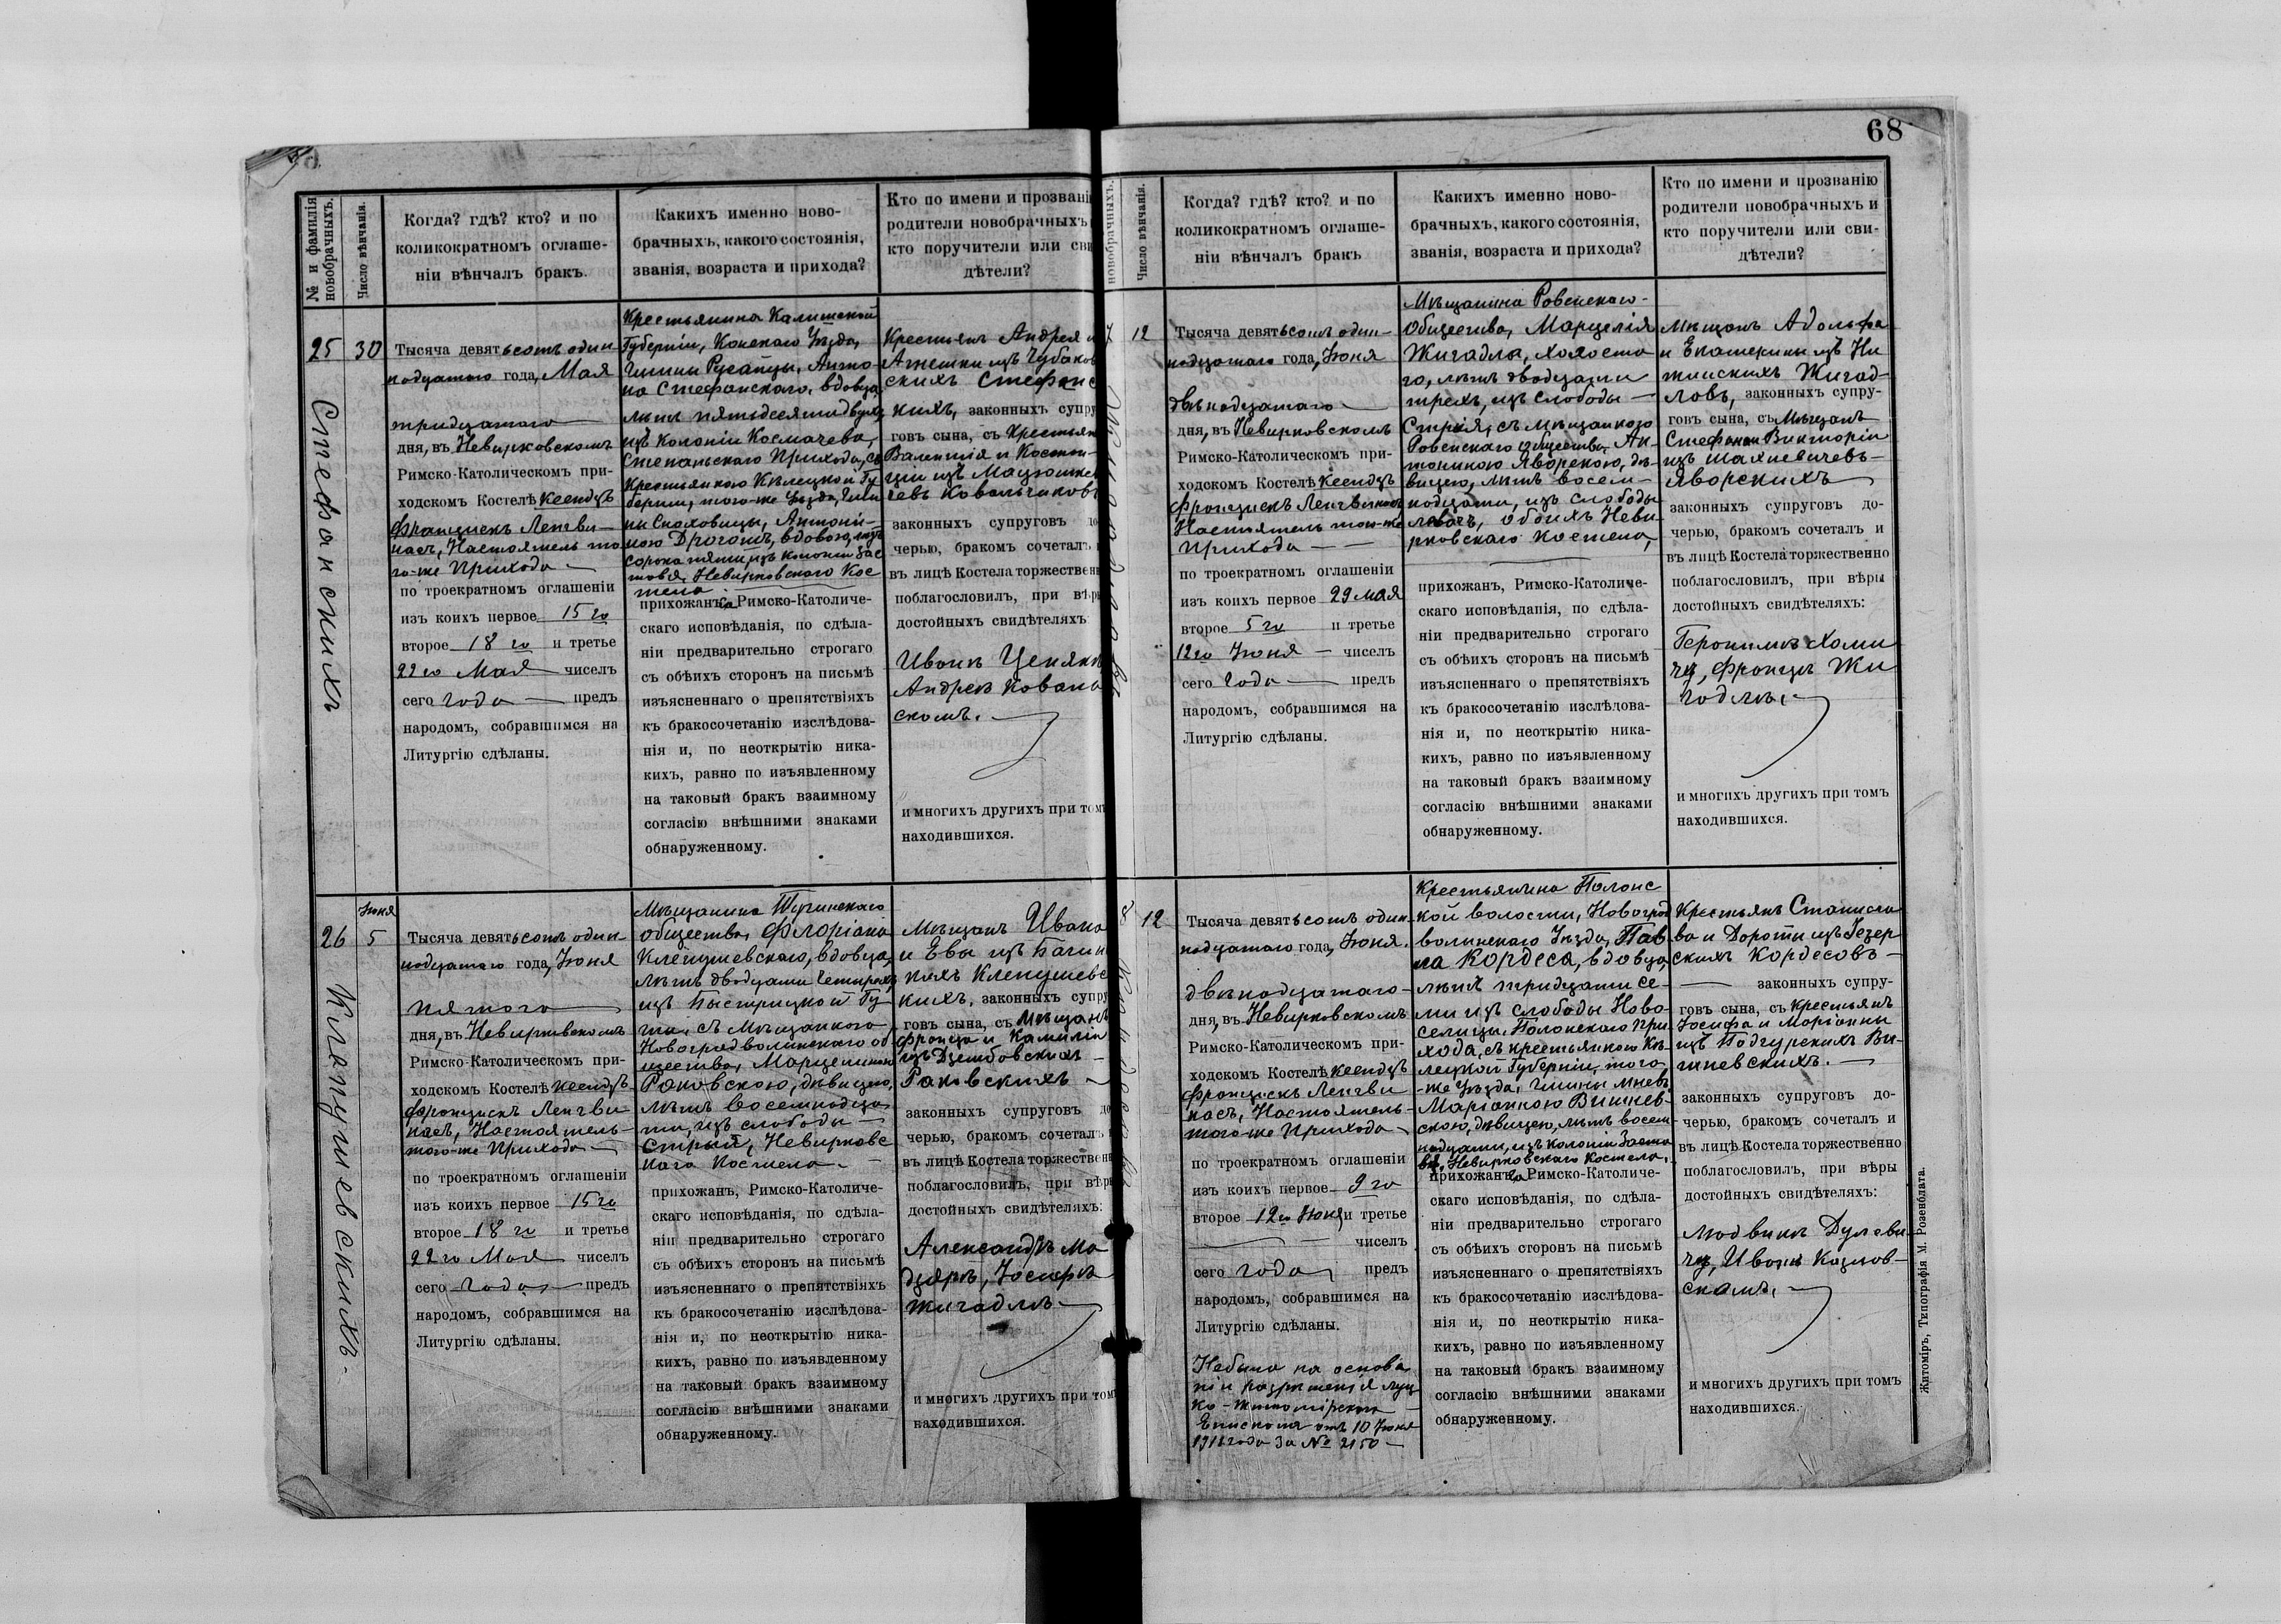 68
№ и фамилія новобрачныхъ.
Число вѣнчанія.
Когда? гдѣ? кто? и по
коликократномъ оглаше-
ніи вѣнчалъ бракъ.
Какихъ именно ново-
брачныхъ, какого состоянія,
званія, возраста и прихода?
Кто по имени и прозвані
родители новобрачныхъ
кто поручители или сви
дѣтели?
25
30
Стефанскихъ
Тысяча девятьсотъ один-
надцатаго года, Мая
тридцатаго
дня, въ Невирковскомъ
Римско-Католическомъ при-
ходскомъ Костелѣ Ксендзъ
Францискъ Ленгви-
насъ, Настоятель то
го-же Прихода
по троекратномъ оглашеніи
изъ коихъ первое 15 го
второе 18 го и третье
22 го Мая чиселъ
сего года предъ
народомъ, собравшимся на
Литургію сдѣланы.
Крестьянина Калишской
Губерніи, Конскаго Уѣзда,
Гмины Русайцы, Анто-
на Стефанскаго, вдовца,
лѣтъ пятьдесяти двухъ,
изъ колоніи Космачева,
Степаньскаго Прихода, съ
Крестьянкою Кѣлецкой Гу
берніи, того-же Уѣзда, Гми
ны Снаховицы, Антоні-
ною Дрогошъ, вдовою, лѣтъ
сорока пяти, изъ колоніи Зас
тавя, Невирковскаго Кос
тела
прихожанъ, Римско-Католиче-
скаго исповѣданія, по сдѣла-
ніи предварительно строгаго
съ обѣихъ сторонъ на письмѣ
изъясненнаго о препятствіяхъ
къ бракосочетанію изслѣдова-
нія и, по неоткрытію ника-
кихъ, равно по изъявленному
на таковый бракъ взаимному
согласію внѣшними знаками
обнаруженному.
Крестьянъ Андрея и
Агнешки изъ Чубаков
скихъ Стефанс
кихъ, законныхъ супру
говъ сына, съ Крестьян
Валентія и Констан-
ціи изъ
Ковальчиковъ
законныхъ супруговъ до
черью, бракомъ сочеталъ и
въ лицѣ Костела торжественн
поблагословилъ, при вѣры
достойныхъ свидѣтеляхъ
Иванъ Ценякъ
Андрей Ковалъ
скомъ.
и многихъ другихъ при томъ
находившихся.
26
Іюня
5
Клепушевскихъ.
Тысяча девятьсотъ один-
надцатаго года, Іюня
пятого
дня, въ Невирковскомъ
Римско-Католическомъ при-
ходскомъ Костелѣ Ксендзъ
Францискъ Ленгви
насъ, Настоятель
того-же Прихода
по троекратномъ оглашеніи
изъ коихъ первое 15 го
второе 18 го и третье
22 го Мая чиселъ
сего года предъ
народомъ, собравшимся на
Литургію сдѣланы.
Мѣщанина Тучинскаго
общества, Флоріана
Клепушевскаго, вдовца,
лѣтъ двадцати четырехъ,
изъ Быстрицкой Гу
ты, съ Мѣщанкою
Новоградволинскаго об
щества, Марцелиною
Раковскою, дѣвицею,
лѣтъ восемнадца
ти, изъ слободы
Стрый, Невирковс
каго Костела.
прихожанъ, Римско-Католиче-
скаго исповѣданія, по сдѣла-
ніи предварительно строгаго
съ обѣихъ сторонъ на письмѣ
изъясненнаго о препятствіяхъ
къ бракосочетанію изслѣдова-
нія и, по неоткрытію ника-
кихъ, равно по изъявленному
на таковый бракъ взаимному
согласію внѣшними знаками
обнаруженному.
Мѣщанъ Ивана
и Евы изъ Багин
Клепушевс
кихъ, законныхъ супру
говъ сына, съ Мѣщанъ
Франца и Камиліи
изъ Дембовскихъ
Раковскихъ
законныхъ супруговъ до
черью, бракомъ сочеталъ
въ лицѣ Костела торжественн
поблагословилъ, при вѣры
достойныхъ свидѣтеляхъ:
Александръ Ма
дзяръ, Іосифъ
Жигадлъ
и многихъ другихъ при томъ
находившихся.
новобрачныхъ.
Число вѣнчанія.
Когда? гдѣ? кто? и по
коликократномъ оглаше-
ніи вѣнчалъ бракъ
Какихъ именно ново-
брачныхъ, какого состоянія,
званія, возраста и прихода?
Кто по имени и прозванію
родители новобрачныхъ и
кто поручители или сви-
дѣтели?
7
12
Тысяча девятьсотъ один-
надцатаго года, Іюня
двѣнадцатаго
дня, въ Невирковскомъ
Римско-Католическомъ при-
ходскомъ Костелѣ Ксендзъ
Францискъ Ленгвинасъ
Настоятель того-же
Прихода
по троекратномъ оглашеніи
изъ коихъ первое 29 Мая
второе 5 го и третье
12 го Іюня чиселъ
сего года предъ
народомъ, собравшимся на
Литургію сдѣланы.
Мѣщанина Ровенскаго
общества, Марцелія
Жигадла, холоста
го, лѣтъ двадцати
трехъ, изъ слободы
Стрыя, съ мѣщанкою
Ровенскаго общества, Ан-
тониною Яворскою, дѣ-
вицею, лѣтъ восем-
надцати, изъ слободы
обоихъ Неви-
рковскаго Костела,
прихожанъ, Римско-Католиче-
скаго исповѣданія, по сдѣла-
ніи предварительно строгаго
съ обѣихъ сторонъ на письмѣ
изъясненнаго о препятствіяхъ
къ бракосочетанію изслѣдова-
нія и, по неоткрытію ника-
кихъ, равно по изъявленному
на таковый бракъ взаимному
согласію внѣшними знаками
обнаруженному.
Мѣщанъ Адольфа
и Екатерины изъ Ни
тинскихъ Жигад-
ловъ, законныхъ супру-
говъ сына, съ Мѣщанъ
Стефана и Викторіи
изъ Шахневичевъ
Яворскихъ
законныхъ супруговъ до-
черью, бракомъ сочеталъ и
въ лицѣ Костела торжественно
поблагословилъ, при вѣры
достойныхъ свидѣтеляхъ:
Геронимъ Хоми
чъ, Францъ Жи
годлъ,
и многихъ другихъ при томъ
находившихся.
8
12
Тысяча девятьсотъ один-
надцатаго года, Іюня.
двѣнадцатаго
дня, въ Невирковскомъ
Римско-Католическомъ при-
ходскомъ Костелѣ Ксендзъ
Францискъ Ленгви
насъ, Настоятель
того-же Прихода
по троекратномъ оглашеніи
изъ коихъ первое 9 го
второе 12 го Іюня и третье
чиселъ
сего года предъ
народомъ, собравшимся на
Литургію сдѣланы.
Небыло на основа
ніи разрѣшенія Луц
ко-Житомірскаго
Епископа отъ 10 Іюня
1911 года за № 2150
Крестьянина Полонс
кой волости, Новоград
волинскаго Уѣзда, Пав
ла Кордеса, вдовца,
лѣтъ тридцати се-
ми изъ слободы Ново-
селицы, Полонскаго При
хода, съ крестьянкою Кѣ-
лецкой Губерніи, того
-же Уѣзда, Гмины Мневъ
Маріанною Вишнев-
скою, дѣвицею, лѣтъ восем
надцати, изъ колоніи Заста
вя, Невирковскаго Костела,
прихожанъ, Римско-Католиче-
скаго исповѣданія, по сдѣла-
ніи предварительно строгаго
съ обѣихъ сторонъ на письмѣ
изъясненнаго о препятствіяхъ
къ бракосочетанію изслѣдова-
нія и, по неоткрытію ника-
кихъ, равно по изъявленному
на таковый бракъ взаимному
согласію внѣшними знаками
обнаруженному.
Крестьянъ Станисла
ва и Дороты изъ Гезер
скихъ Кордесовъ
законныхъ супру-
говъ сына, съ Крестьянъ
Іосифа и Маріанны
изъ Подгурскихъ Ви-
шневскихъ.
законныхъ супруговъ до-
черью, бракомъ сочеталъ и
въ лицѣ Костела торжественно
поблагословилъ, при вѣры
достойныхъ свидѣтеляхъ:
Людвикъ Дулеви
чъ, Иванъ Козлов-
скомъ,
и многихъ другихъ при томъ
находившихся.
Житоміръ, Типографія М. Розенблата.